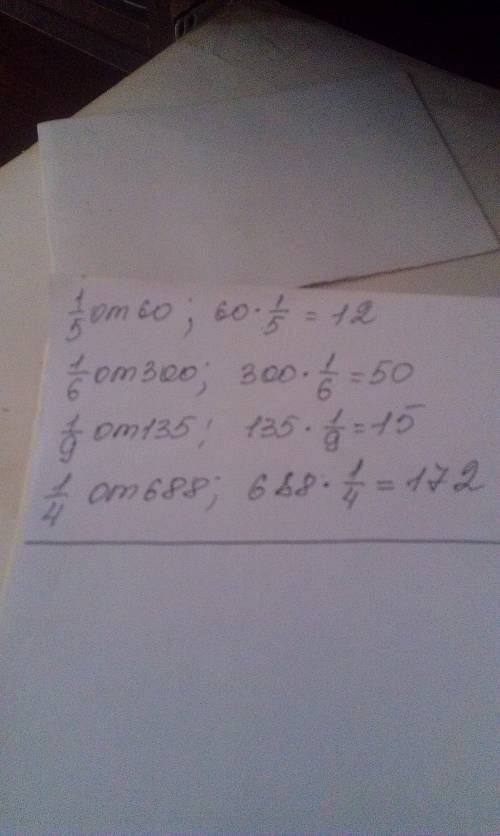 1/5 от 60; 60 · 1/5 = 12
1/6 от 300; 300 · 1/6 = 50
1/9 от 135; 135 · 1/9 = 15
1/4 от 688; 688 · 1/4 = 172